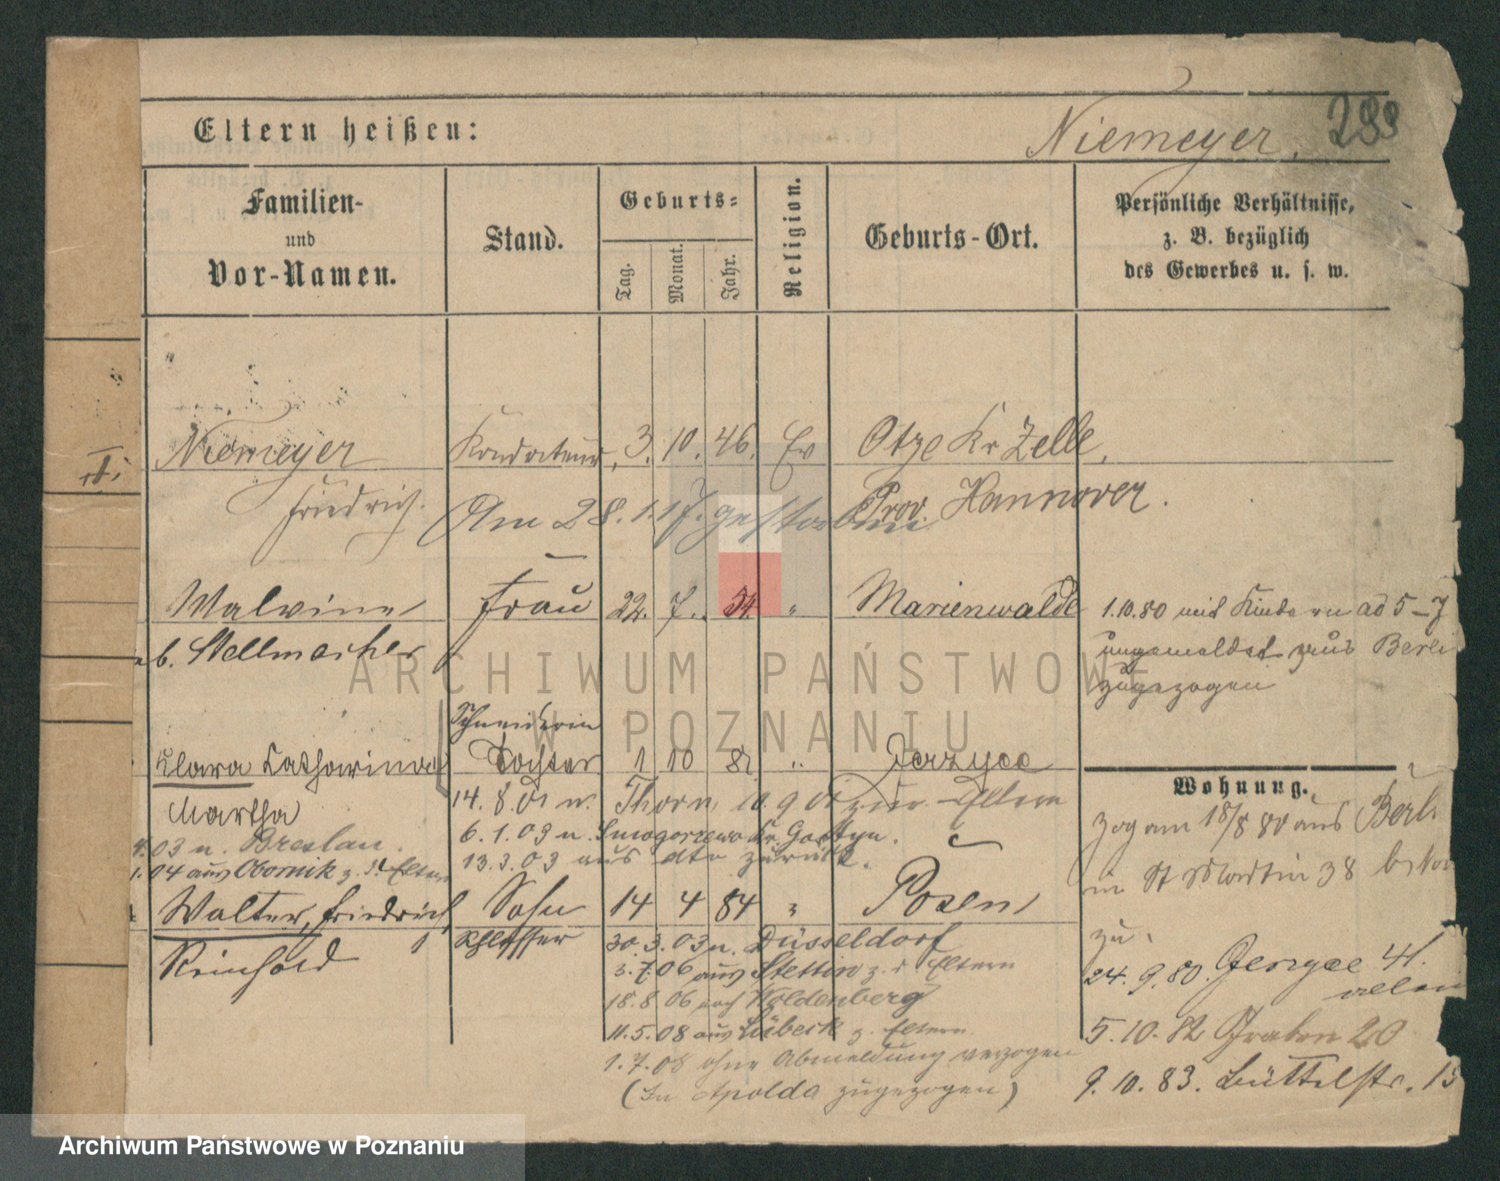 Eltern heißen:
Niemeyer.
Familien-
und
Vor-Namen.
Stand.
Geburts-
Tag.
Monat.
Jahr.
Religion.
Geburts-Ort.
Persönliche Verhältnisse,
z. B. bezüglich
des Gewerbes u. s. w.
I.
Niemeyer Kondukteur, 3. 10. 46. Ev Otze Kr Zelle,
Friedrich. Prov. Hannover.
Am 28. 1. 17. gestorben
Malvine Frau 22. 7. 54. " Marienwalde
1.10.80 mit Kinde ad 5-7
b. Stellmacher
ungemeldet aus Berli
zugezogen
ARCHIWUM PAŃSTWOWE
W POZNANIU
Schneiderin
Clara Catharina Tochter 1 10 82 " Jerzyce
Martha
14. 8. 01 n. Thorn, 10. 9 01 zur Eltern
03 n. Breslau.
6. 1. 03 n. Smogorzewo Kr. Gostyn.
04 aus Obornik z. d. Eltern
13. 3. 03 aus dto zurück.
Walter, Friedrich Sohn 14 4 84 " Posen
Reinhold Schlosser
30. 3. 03 n. Düsseldorf
3. 7. 06 aus Stettin z. d Eltern
18. 8. 06 nach Woldenberg
11. 5. 08 aus Lübeck z. Eltern
1. 7. 08 ohne Abmeldung verzogen
(In Apolda zugezogen)
Wohnung.
zog am 18/8 80 aus Berli
in St Martin 38 b
zu
24. 9. 80. Jerzyce 41.
5. 10. 82 Graben 20
9. 10. 83. Büttelstr. 15
Archiwum Państwowe w Poznaniu